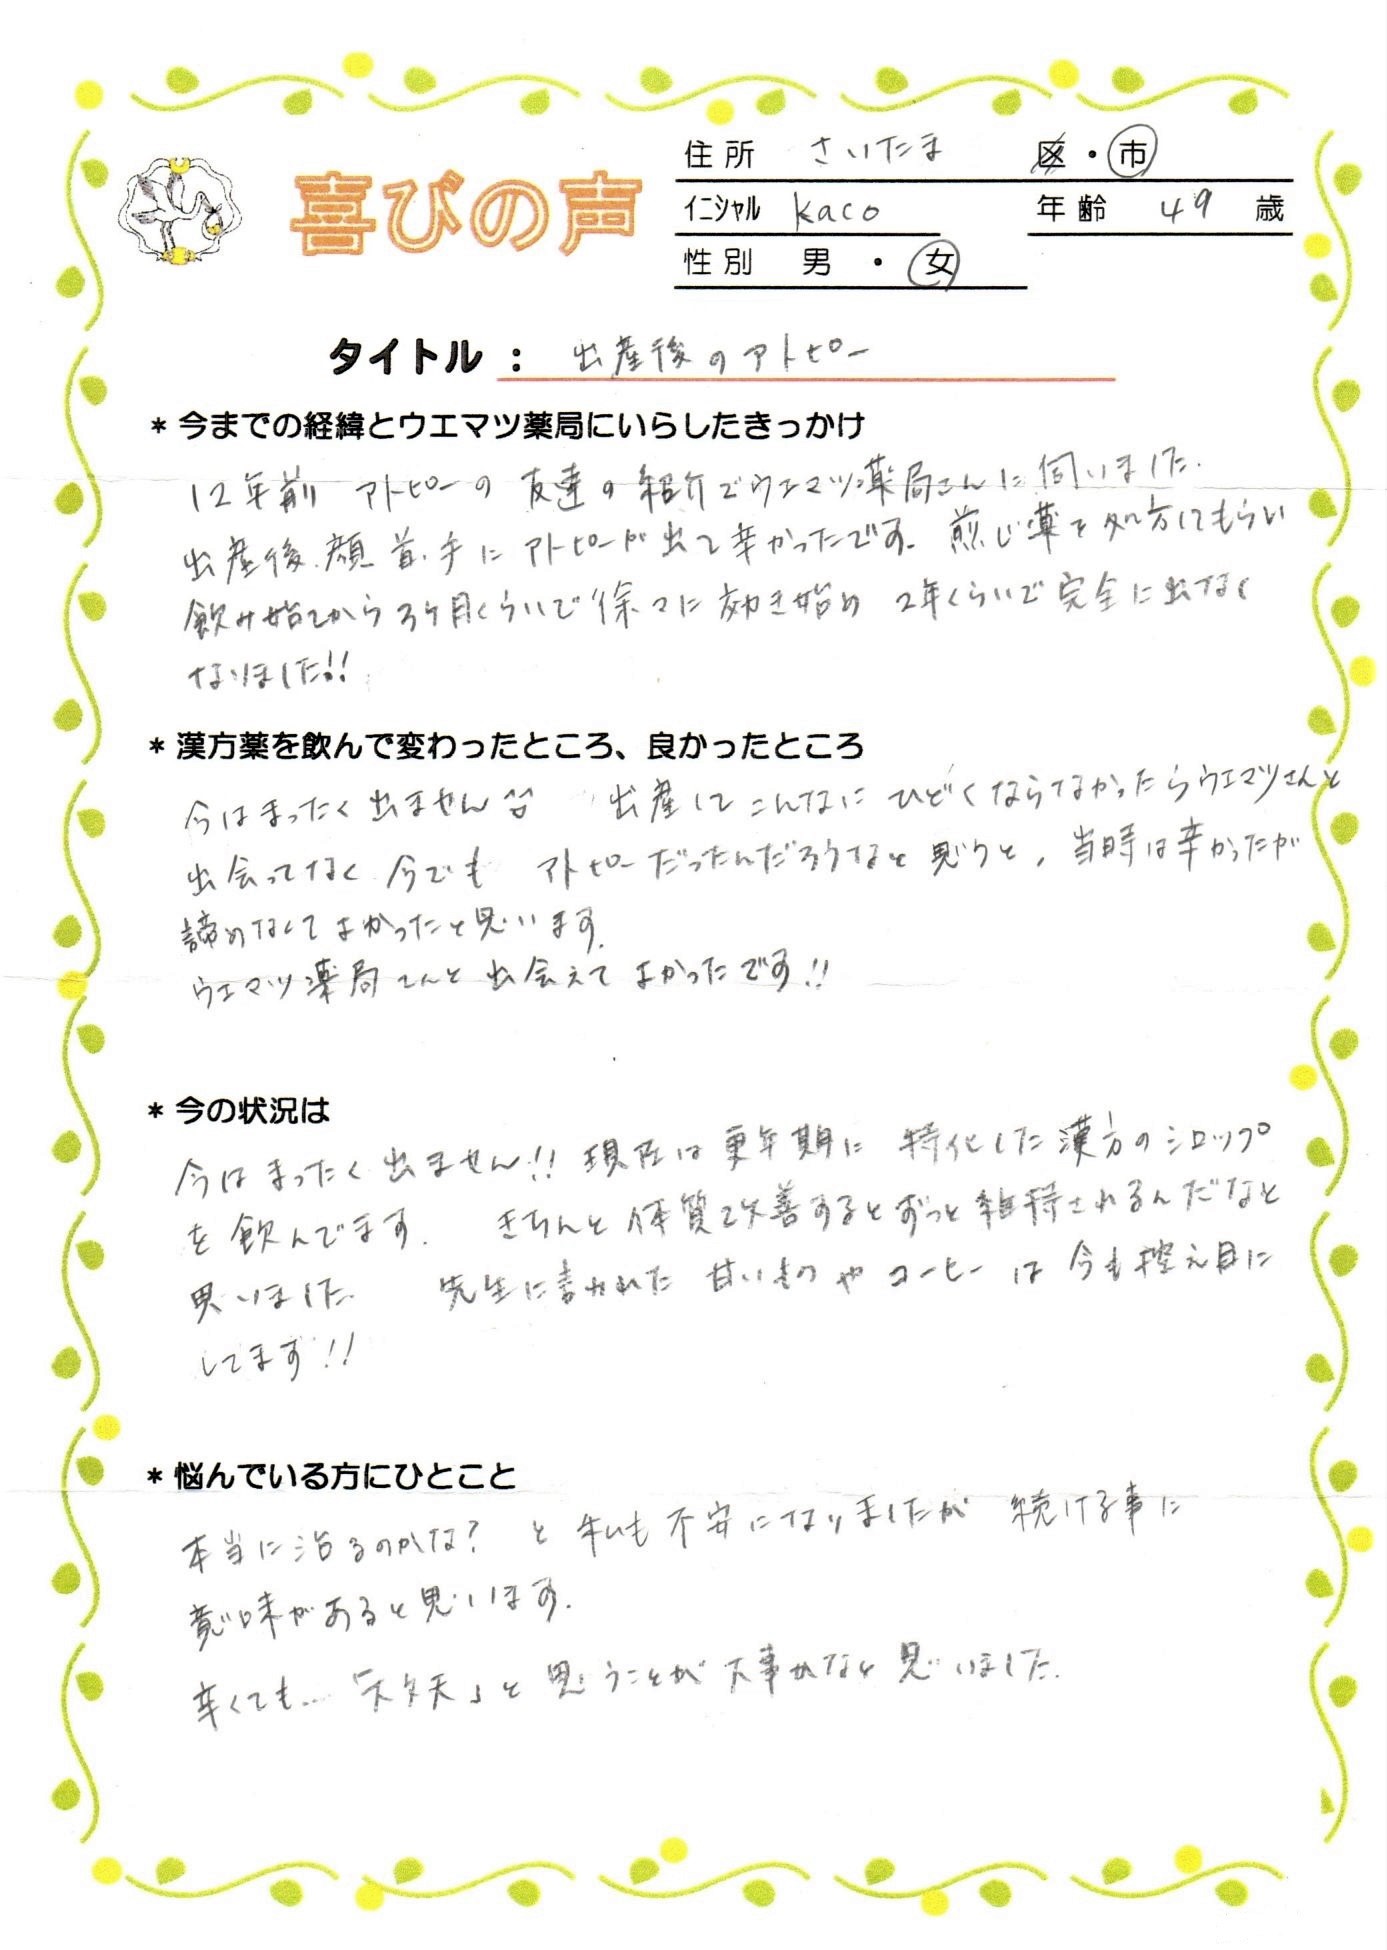 喜びの声
住所 さいたま 区・市
イニシャル kaco 年齢 49 歳
性別 男・女
タイトル： 出産後のアトピー
* 今までの経緯とウエマツ薬局にいらしたきっかけ
12年前 アトピーの友達の紹介でウエマツ薬局さんに伺いました.
出産後.顔.首.手にアトピーが出て辛かったです. 煎じ薬を処方してもらい
飲み始てから3ヶ月くらいで徐々に効き始め 2年くらいで完全に出なく
なりました!!
* 漢方薬を飲んで変わったところ、良かったところ
今はまったく出ません^^ 出産してこんなにひどくならなかったらウエマツさんと
出会ってなく 今でも アトピーだったんだろうなと思うと, 当時は辛かったが
諦めなくてよかったと思います.
ウエマツ薬局さんと出会えてよかったです!!
* 今の状況は
今はまったく出ません!! 現在は更年期に特化した漢方のシロップ
を飲んでます. きちんと体質改善するとずっと維持されるんだなと
思いました. 先生に言われた甘いものやコーヒーは今も控え目に
してます!!
* 悩んでいる方にひとこと
本当に治るのかな? と私も不安になりましたが 続ける事に
意味があると思います.
辛くても…「大丈夫」と思うことが大事かなと思いました.